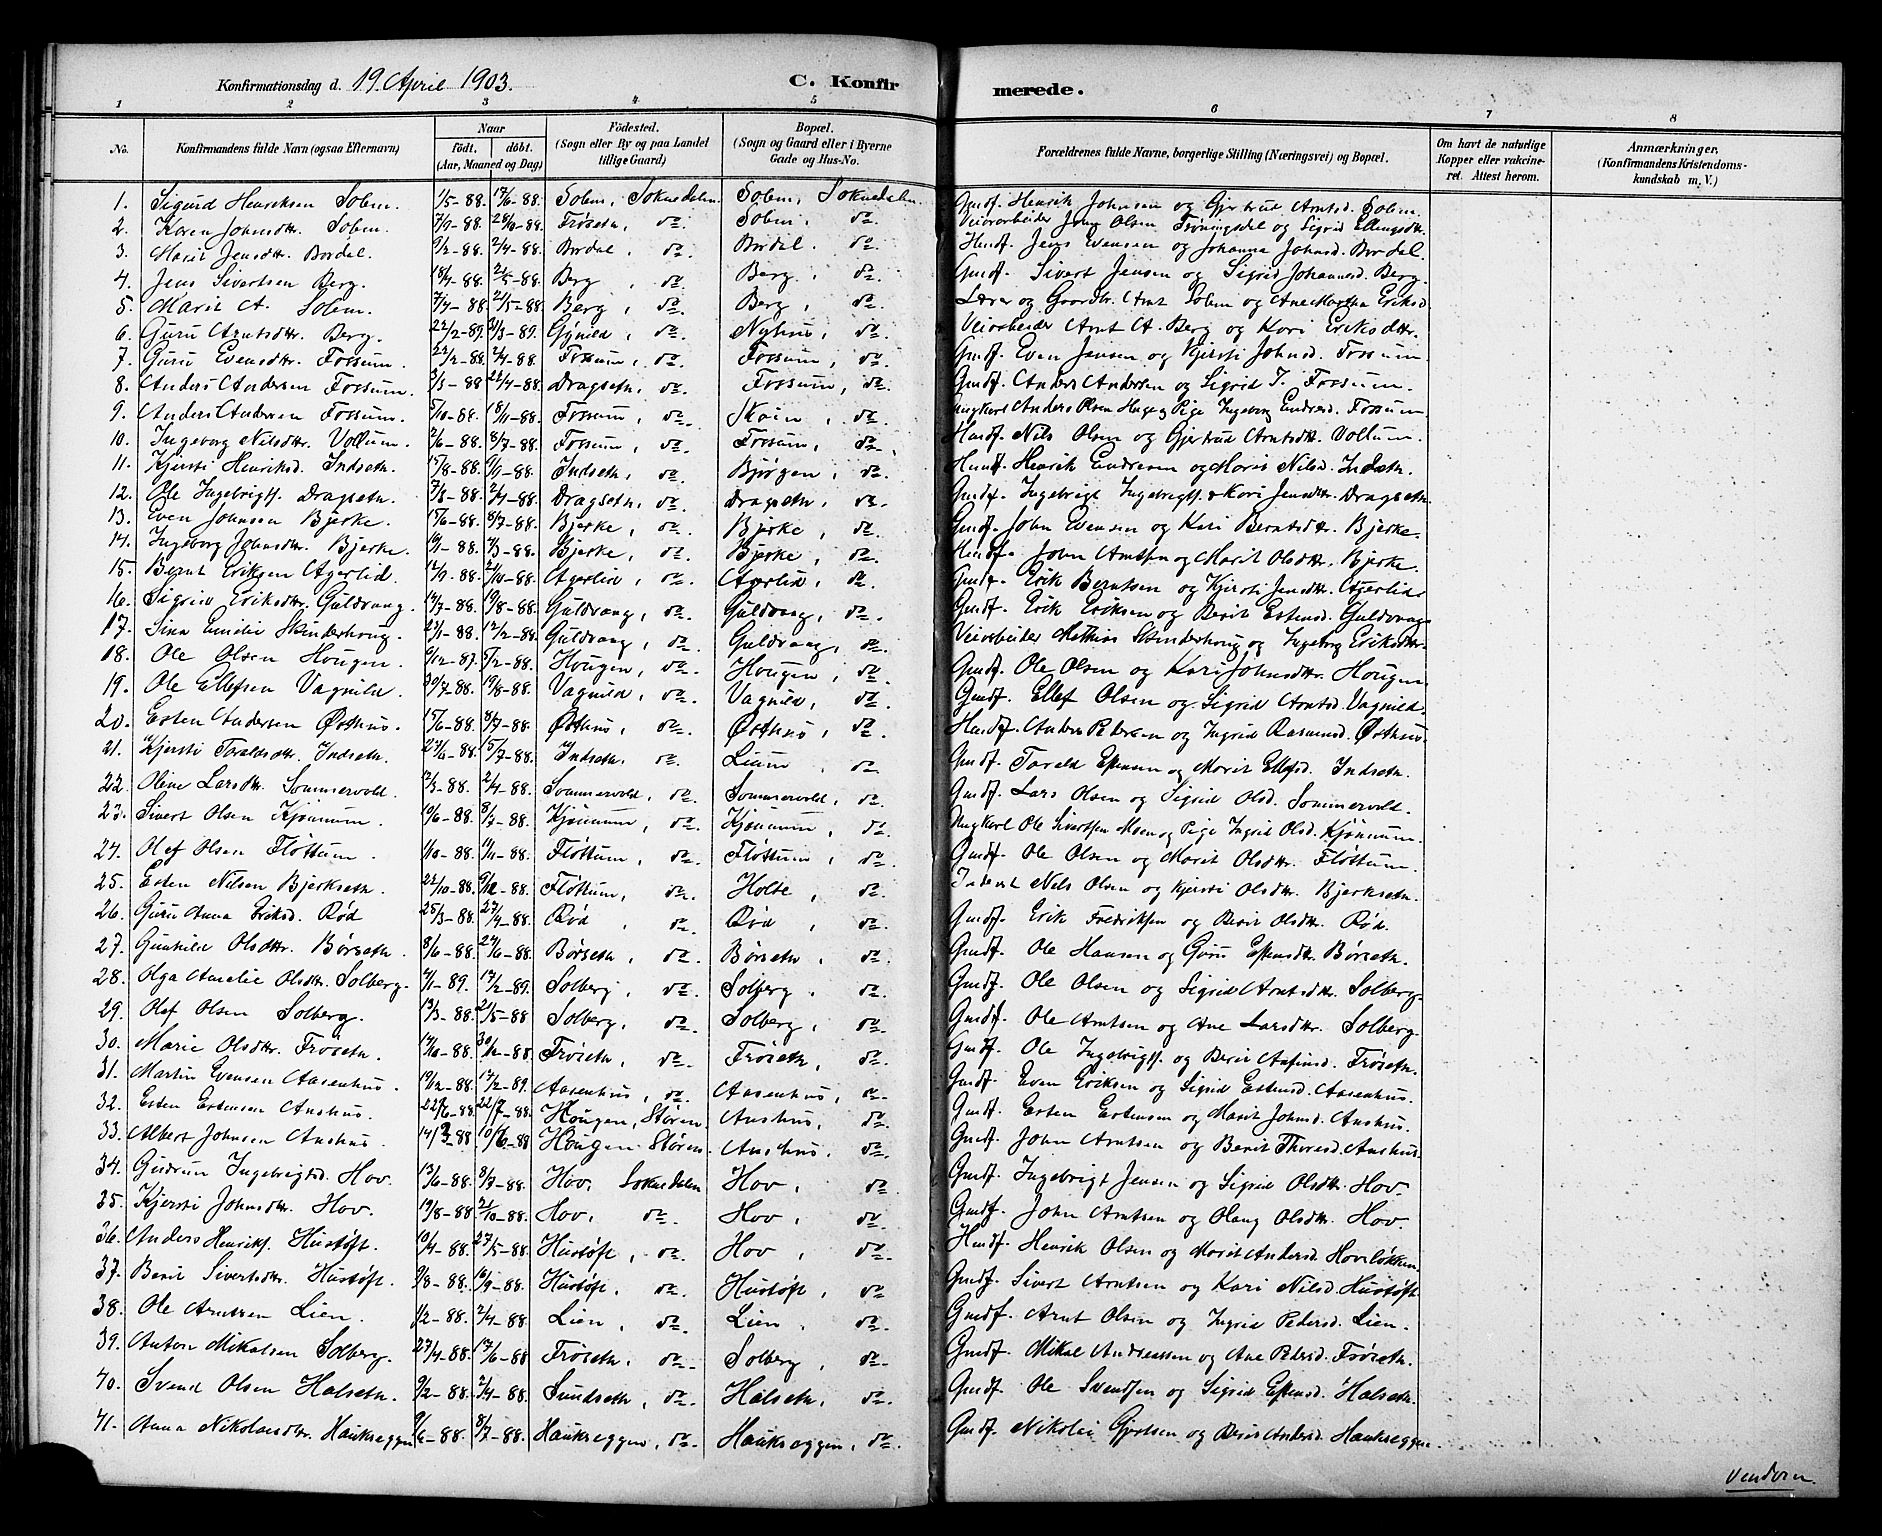 Konfirmationsdag d. 19. April 1903. C. Konfirmerede.
1 2 3 4 5 6 7 8
No. Konfirmandens fulde Navn (ogsaa Efternavn) Naar født. døbt. (Aar, Maaned og Dag) Födested. (Sogn eller By og paa Landet tillige Gaard) Bopæl. (Sogn og Gaard eller i Byerne Gade og Hus-No. Forældrenes fulde Navne, borgerlige Stilling (Næringsvei) og Bopæl. Om havt de naturlige Kopper eller vakcineret. Attest herom. Anmærkninger, (Konfirmandens Kristendomskundskab m. V.)
1. Sigurd Henriksen Solem. 1/5-88. 17/6-88. Solem, Soknedalen Solem, Soknedalen Gmdf. Henrik Johnsen og Gjertrud Arntsd. Solem.
2. Karen Johnsdtr. Solem. 7/9-88. Trøseth, do. Solem, do. Veiarbeider John Olsen og Sigrid Ellingsdtr.
3. Marit Jensdtr. Bordal. 9/2-88. 2/4-88. Bordal, do. Bordal. do. Husf. Jens Evensen og Johanna Johnsd. Bordal.
4. Jens Sivertsen Berg. 2/5-88. Berg, do. Berg, do. Gmdf. Sivert Jensen og Sigrid Johannesd. Berg.
5. Marit A. Solem. 7/4-88. 21/5-88. Berg, do. Berg, do. Lærer og Gaardbr. Arnt Solem og Ane Martha Eriksd.
6. Guru Arntsdtr. Berg. 22/2-89. Gynild, do. Nyhus, do. Veiarbeider Arnt A. Berg og Kari Eriksdtr.
7. Guru Evensdtr. Fossum. 22/2-88. 2/4-88. Fossum, do. Fossum, do. Gmdf. Even Jensen og Kjersti Johnsd. Fossum
8. Anders Andersen Fossum. 3/3-88. 22/4-88. Dragseth, do. Fossum, do. Gmdf. Anders Andersen og Sigrid J. Fossum.
9. Anders Andersen Fossum. 5/10-88. 18/11-88. Fossum, do. Skoin, do. Ungkarl Anders Olsen Hage og Pige Ingeborg Endresd. Fossum
10. Ingeborg Nilsdtr. Vollum. 2/6-88. 8/7-88. Fossum, do. Fossum, do. Husf. Nils Olsen og Gjertrud Arntsdtr. Vollum.
11. Kjersti Henriksd. Indseth. 15/8-88. Indseth, do. Bjørgen, do. Husf. Henrik Endresen og Marit Nilsd. Indseth.
12. Ole Ingebrigts. Dragseth. 7/3-88. 2/4-88. Dragseth, do. Dragseth, do. Gmdf. Ingebrigt Ingebrigts. & Kari Jensdtr. Dragseth.
13. Even Johnsen Bjerke. 15/6-88. 8/7-88. Bjerke, do. Bjerke, do. Gmdf. John Evensen og Kari Berntsdtr. Bjerke.
14. Ingeborg Johnsdtr. Bjerke. Bjerke, do. Bjerke, do. Husf. John Arntsen og Marit Olsdtr. Bjerke.
15. Bernt Eriksen Agerlid. 12/9-88. 21/10-88. Agerlid, do. Agerlid, do. Gmdf. Erik Berntsen og Kjersti Jensdtr. Agerlid
16. Sigrid Eriksdtr. Guldvang. 14/7-88. 19/8-88. Guldvang, do. Guldvang, do. Gmdf. Erik Eriksen og Berit Estensd. Guldvang
17. Sina Emelie Skinderhoug. 22/1-88. 12/2-88. Guldvang, do. Guldvang, do. Veiarbeider Mathias Skinderhoug og Ingeborg Eriksdtr.
18. Ole Olsen Hougen. 9/12-87. 5/2-88. Hougen, do. Hougen, do. Gmdf. Ole Olsen og Kari Johnsdtr. Hougen
19. Ole Ellefsen Vagnild. 30/7-88. 19/8-88. Vagnild, do. Vagnild, do. Gmdf. Ellef Olsen og Sigrid Arntsd. Vagnild.
20. Esten Andersen Østhus. 15/6-88. 8/7-88. Østhus, do. Østhus, do. Husf. Anders Petersen og Ingrid Rasmusd. Østhus.
21. Kjersti Toraldsdtr. Indseth. 27/6-88. 15/7-88. Indseth, do. Lium, do. Gmdf. Torald Estensen og Marit Ellefsd. Indseth.
22. Oline Larsdtr. Sommervold. 12/3-88. 2/4-88. Sommervold, do. Sommervold, do. Gmdf. Lars Olsen og Sigrid Olsd. Sommervold.
23. Sivert Olsen Kjönnum. 19/6-88. 8/7-88. Kjönnum, do. Kjönnum, do. Ungkarl Ole Sivertsen Moen og Pige Ingrid Olsd. Kjönnum.
24. Olef Olsen Fløttum. 1/10-88. 11/11-88. Fløttum, do. Fløttum, do. Gmdf. Ole Olsen og Marit Olsdtr. Fløttum.
25. Esten Nilsen Bjerkseth. 22/10-88. 9/12-88. Fløttum, do. Holte, do. Inderst Nils Olsen og Kjersti Olsdtr. Bjerkseth.
26. Guru Anna Eriksd. Rød 25/3-88. 27/4-88. Rød do. Rød, do. Gmdf. Erik Fredriksen og Berit Olsdtr. Rød.
27. Gunhild Olsdtr. Børseth. 8/6-88. 24/6-88. Børseth, do. Børseth, do. Gmdf. Ole Hansen og Guru Estensdtr. Børseth.
28. Olga Amelie Olsdtr. Solberg. 4/1-89. 17/2-89. Solberg, do. Solberg. do. Gmdf. Ole Olsen og Sigrid Arntsdtr. Solberg.
29. Olef Olsen Solberg. 13/3-88. 21/5-88 Solberg. do. Solberg, do. Gmdf. Ole Arntsen og Ane Larsdtr. Solberg.
30. Marie Olsdtr. Frøseth. 14/10-88. 30/12-88. Frøseth, do. Frøseth, do. Gmdf. Ole Ingebrigts. og Berit Asfinsd. Frøseth.
31. Martin Evensen Aasenhus. 19/12-88. 17/2-89. Aasenhus, do. Aasenhus, do. Gmdf. Even Eriksen og Sigrid Estensd. Aasenhus.
32. Esten Estensen Aushus. 22/6-88. 22/7-88. Hougen, Støren. Aushus, do. Gmdf. Esten Estensen og Marit Johnsd. Aushus.
33. Albert Johnsen Aushus. 10/6-88 Hougen Støren. Aushus, do. Gmdf. John Arntsen og Berit Thoresd. Aushus.
34. Gudrun Ingebrigtsd. Hov. 13/6-88. 8/7-88. Hov, Soknedalen Hov, do. Gmdf. Ingebrigt Jensen og Sigrid Olsdtr. Hov.
35. Kjersti Johnsdtr. Hov. 19/8-88. 21/10-88. Hov, do. Hov, do. Gmdf. John Arntsen og Olaug Olsdtr. Hov.
36. Anders Henriks. Hustøft. 10/4-88. 27/5-88. Hustøft, do. Hov, do. Husf. Henrik Olsen og Marit Andersd. Hovsløkken.
37. Berit Sivertsdtr. Hustøft. 9/8-88. 16/9-88. Hustøft, do. Hustøft, do. Gmdf. Sivert Arntsen og Kari Nilsd. Hustøft.
38. Ole Arntsen Lien. 1/2-88. 2/4-88 Lien, do. Lien, do. Gmdf. Arnt Olsen og Ingrid Pedersd. Lien.
39. Anton Mikalsen Solberg. 27/4-88. 17/6-88 Frøseth, do. Solberg, do. Gmdf. Mikal Andreassen og Ane Pedersd. Frøseth.
40. Svend Olsen Halseth. 9/2-88. 2/4-88. Sundseth, do. Halseth, do. Gmdf. Ole Svendsen og Sigrid Estensd. Halseth.
41. Anna Nikolaisdtr. Haukreggen 9/6-88. 8/7-88. Haukreggen, do. Haukreggen, do. Gmdf. Nikolai Gjertsen og Berit Andersd. Haukreggen.
Vend om.